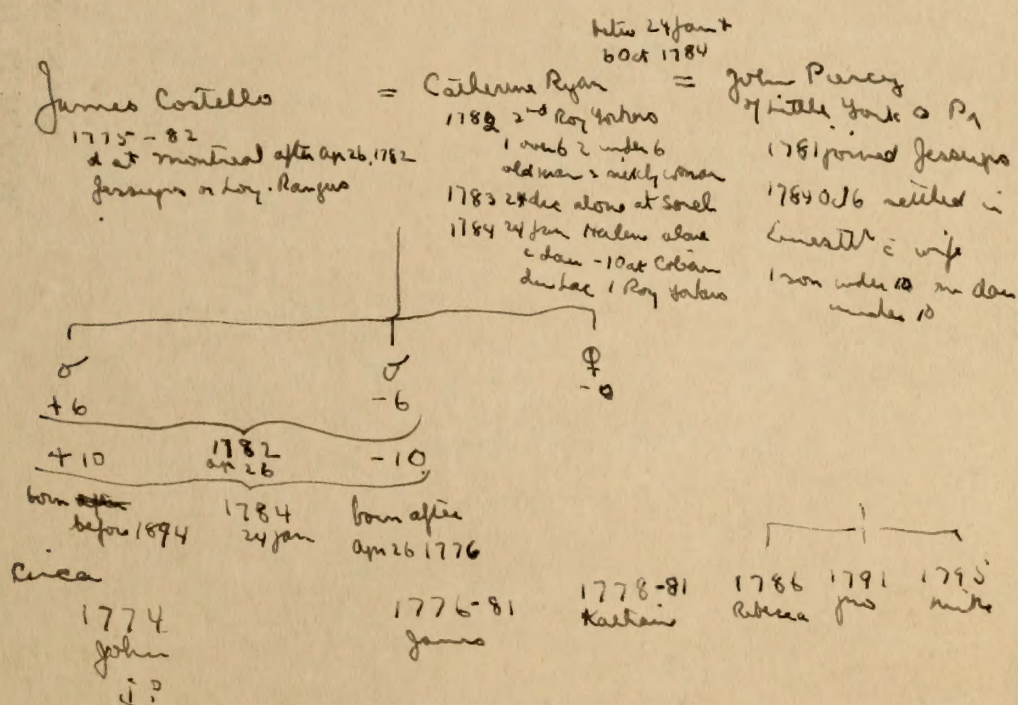 betw 24 Jan &
6 Oct 1784
James Costello = Catherine Ryan = John Piercy
1775-82
d at Montreal after Apr 26, 1782
Jessups or Loy. Rangers
1782 2nd Roy Yorkers
1 over 6 2 under 6
old man & sickly woman
1783 24 dec alone at Sorel
1784 24 Jan alone
dau -10 at
du Lac 1 Roy Yorkers
of Little York Pa
1781 joined Jessups
1784 O 16 settled in
c̄ wife
1 son under 10 dau
under 10
♂ ♂ ♀
+6 -6 -
1782
Apr 26
+10 -10
born after
before 1894
1784
24 Jan
born after
Apr 26 1776
Circa
1774
John
J?
1776-81
James
1778-81
1786
Rebecca
1791
Jno
1795